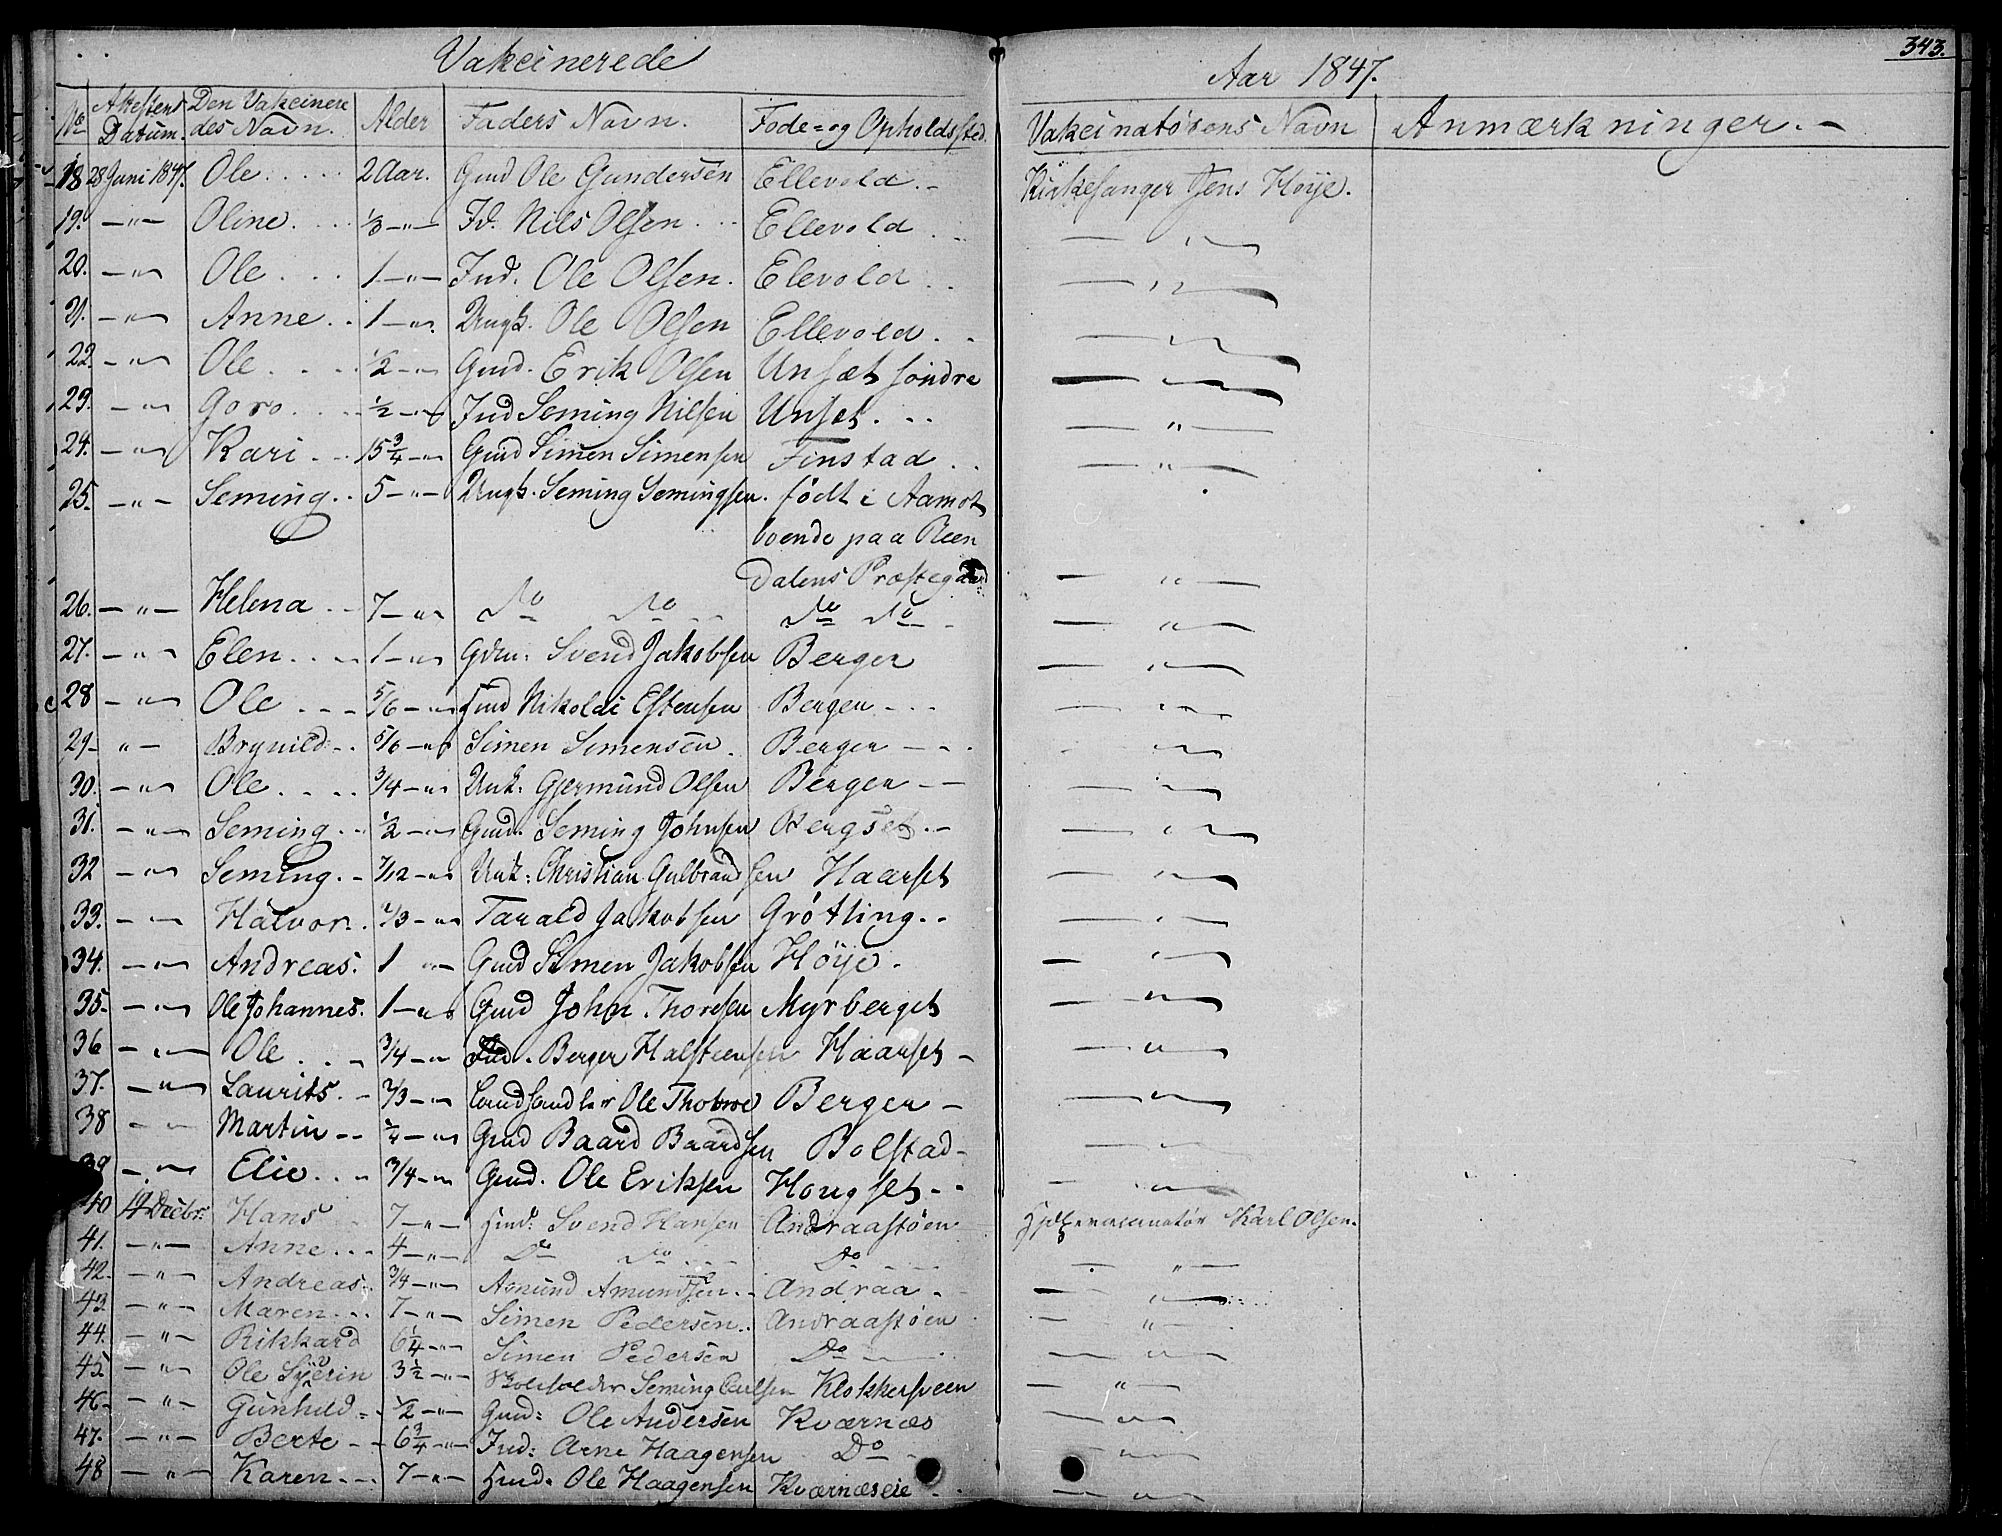 343.
Vakcinerede Aar 1847.
No Attestens Datum. Den Vakcineredes Navn. Alder Faders Navn. Føde- og Opholdssted. Vakcinatørens Navn Anmærkninger.-
18 28 Juni 1847. Ole 2 Aar. Gmd Ole Gundersen Ellevold.- Kirkesanger Jens Høye.
19. -"- Oline 1/3 -"- Nils Olsen Ellevold -"-
20. -"- Ole 1 -"- Ind. Ole Olsen. Elevold -"-
21. -"- Anne 1 -"- Ungk. Ole Olsen Ellevold -"-
22. -"- Ole 1/2 -"- Gmd. Erik Olsen Unsæt søndre -"-
23. -"- Goro 1/2 -"- Ind Seming Nilsen Unset -"-
24. -"- Kari 15 3/4 -"- Gmd Simen Simensen Finstad -"-
25. -"- Seming 5 -"- Ungk. Seming Semingsen. født i Aamot
boende paa Reen
dalens Præstegaard -"-
26. -"- Helena 7 -"- Do Do Do Do -"-
27. -"- Elen 1 -"- Svend Jakobsen Berger -"-
28 -"- Ole 5/6 -"- Hmd Nikolai Estensen Berger -"-
29 -"- Brynild 5/6 -"- Simen Simensen. Berger -"-
30. -"- Ole 3/4 -"- Unk: Gjermund Olsen Berger -"-
31. -"- Seming 1/2 -"- Gmd. Seming Johnsen Bergset -"-
32 -"- Seming 7/12 -"- Unk: Christian Gulbrandsen Haarset -"-
33. -"- Halvor 2/3 -"- Tarald Jakobsen Grøtting -"-
34. -"- Andreas. 1 -"- Gmd Simen Jakobsen Høye -"-
35. -"- Ole Johannes. 1 -"- Gmd John Thoresen Myrberget -"-
36 -"- Ole 3/4 -"- Berger Halsteensen Haarset -"-
37. -"- Laurits 2/3 -"- Landhandler Ole Berger -"-
38 -"- Martin -"- Gmd Baard Baardsen Bolstad -"-
39 -"- Elie 3/4 -"- Gmd. Ole Eriksen Hougset -"-
40 Decbr. Hans 7 -"- Hmd. Svend Hansen Andraastøen Hjelpevaccinatør Karl Olsen.
41. -"- Anne 4 -"- Do Do Do -"-
42. -"- Andreas 3/4 -"- Amund Amundsen Andraa -"-
43. -"- Maren 7 -"- Simen Pedersen Andraastøen -"-
44. -"- Rikkard 6 1/4 -"- Simen Pedersen Do -"-
45. -"- Ole Syverin 3 1/2 -"- Skoleholder Seming Klokkersveen -"-
46. -"- Gunhild 1/2 -"- Gmd: Ole Andersen Kværnæs -"-
47. -"- Berte 6 3/4 -"- Ind: Arne Haagensen Do -"-
48 -"- Karen 7 -"- Hmd. Ole Haagensen Kværnæseie -"-